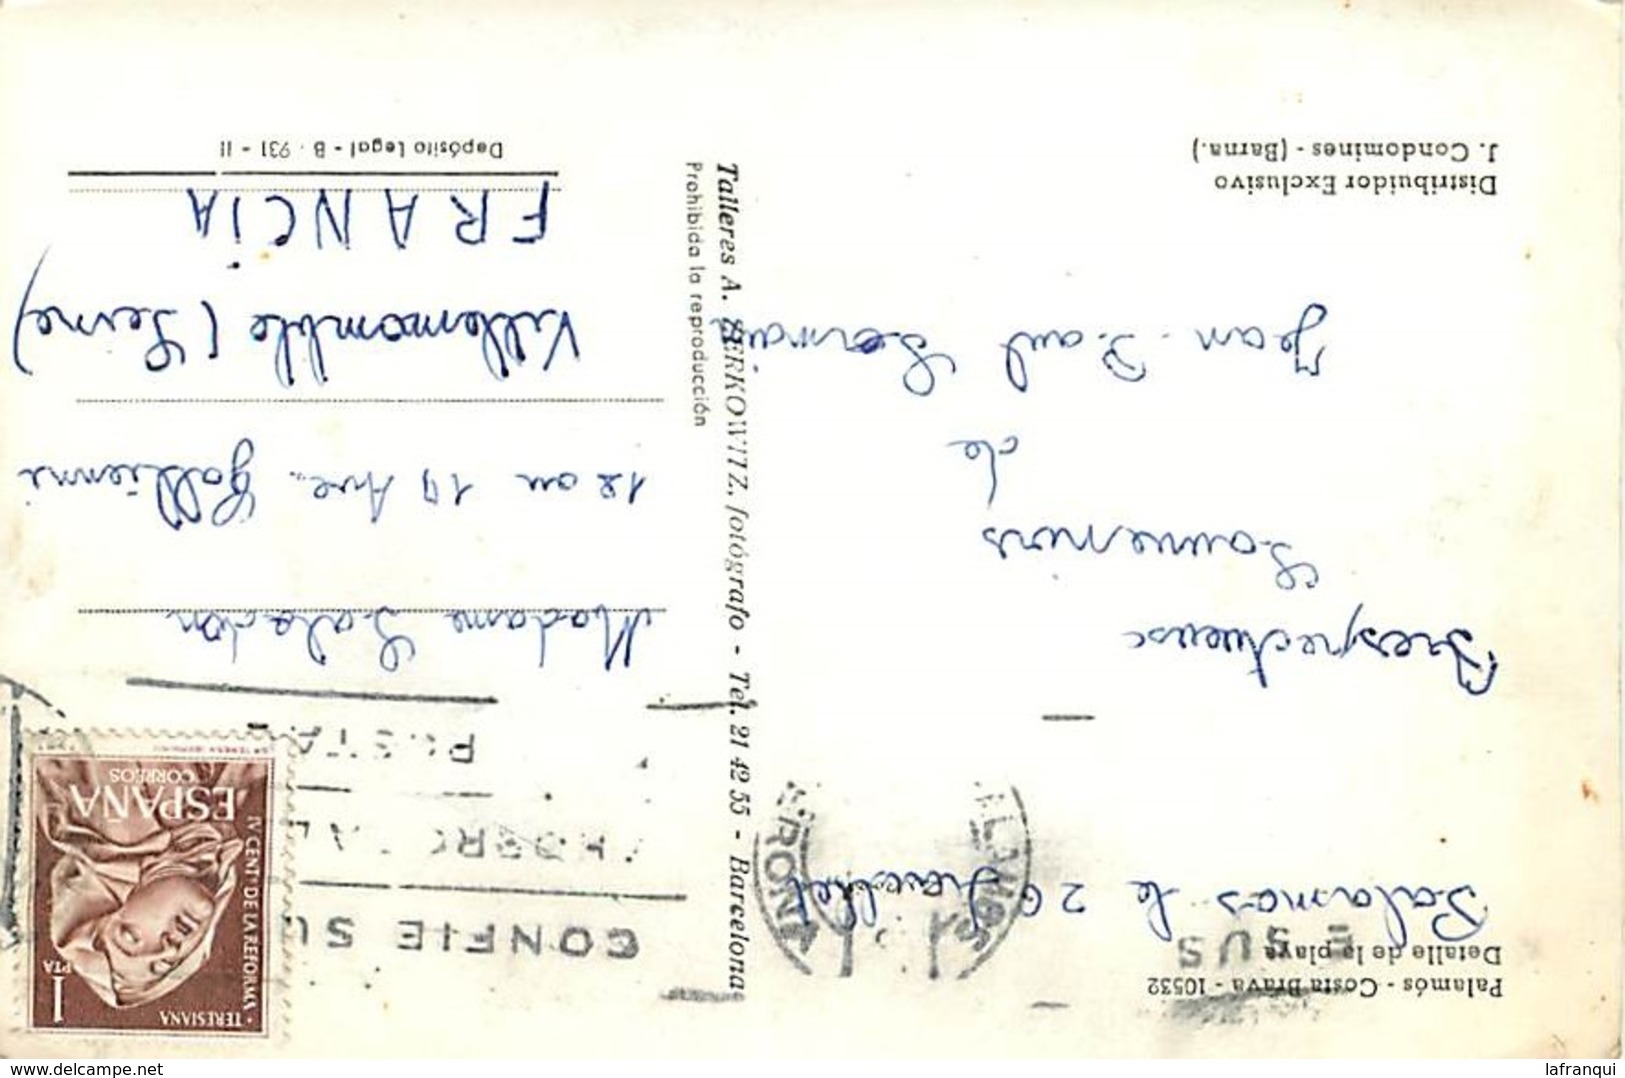 Palamós - Costa Brava - 10532
Detalle de la playa
Palamos le 20 Juillet
Respectueux
Souvenirs
de
Jean-Paul
Distribuidor Exclusivo
J. Condomines - (Barna.)
Talleres A. ZERKOWITZ, fotógrafo - Tel. 21 42 55 - Barcelona
Prohibida la reproducción
TERESIANA
IV CENT. DE LA REFORMA
1
PTA
ESPAÑA
CORREOS
CONFIE SU
Madame
12 ou 14 Ave. Gallieni
Villemomble (Seine)
FRANCIA
Depósito Legal - B. 931 - II
delcampe.net
lafranqui